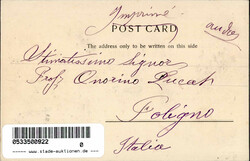 Imprimé
POST CARD
The address only to be written on this side
Stimatissimo Signor
Prof. Onorino
Foligno
Italia
0533500922
0
© www.slade-auktionen.de